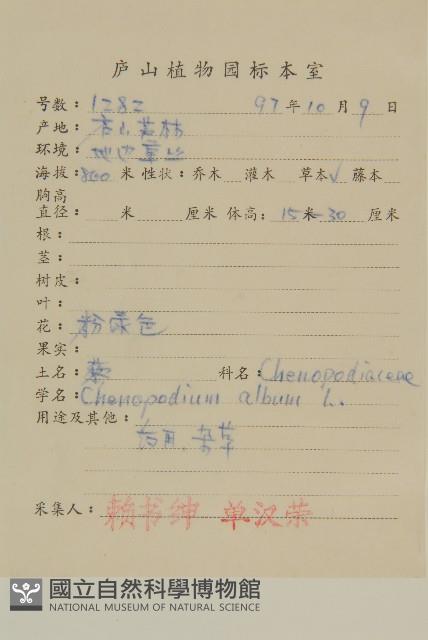 庐山植物园标本室
号数：1282 97年10月9日
产地：
环境：
海拔：800米 性状：乔木 灌木 草本√ 藤本
胸高
直径： 米 厘米 体高：15米-30 厘米
根：
茎：
树皮：
叶：
花：粉绿色
果实：
土名：藜 科名：Chenopodiaceae
学名：Chenopodium album L.
用途及其他：
药用、杂草
采集人：赖书绅 单汉荣
國立自然科學博物館
NATIONAL MUSEUM OF NATURAL SCIENCE